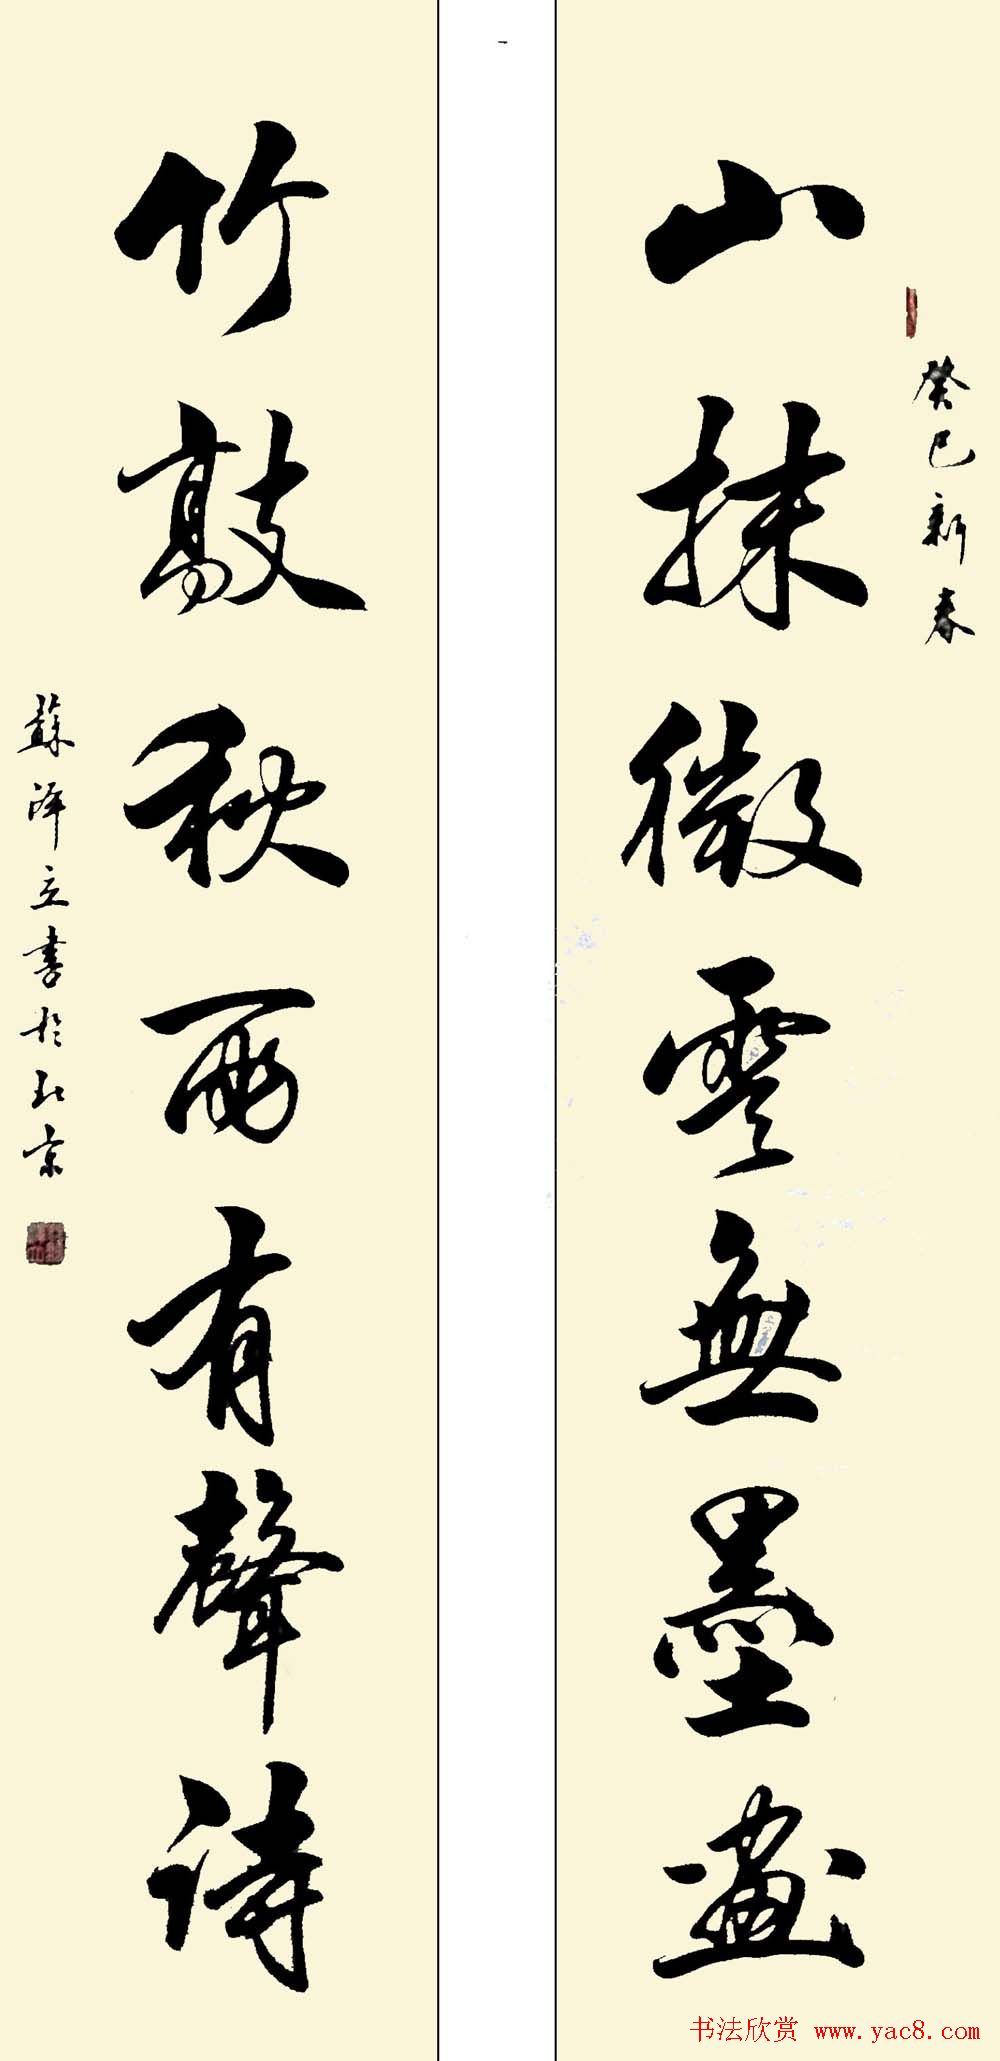 癸巳新春
山抹微雲無墨畫
竹敲秋雨有聲詩
蘇澤立書於北京
书法欣赏 www.yac8.com